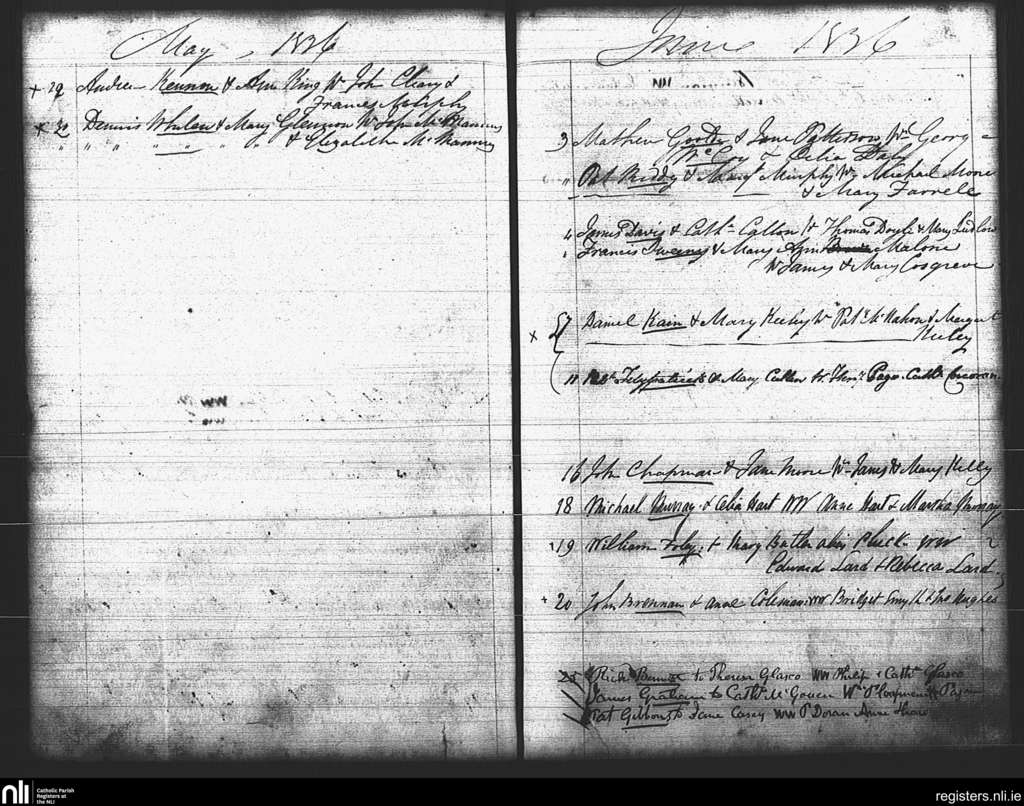 May 1836
+ 29 Andrew Kennon & Ann King Ws John Cleary &
Frances Murphy
× 30 Dennis Whelan & Mary Glennon Ws John McManus
" " " " " " & Elizabeth McManus
June 1836
3 Mathew & Jane Patterson Ws George
McCoy & Celia Daly
" Pat Reddy & Mary Murphy Ws Michael Moore
& Mary Farrell
4 James Davis & Cath Calton Ws Thomas Doyle & Mary Ludlow
Francis Sweeney & Mary Malone
Ws James & Mary Cosgrove
× 7 Daniel Kain & Mary Keeley Ws Pat McMahon & Margaret
Keeley
11 Fitzpatrick & Mary Cullen Ws Page Cath Corcoran
16 John Chapman & Jane Moore Ws James & Mary Kelly
18 Michael Murray & Celia Hart WW Anne Hart & Martha Murray
19 William Foley & Mary Butler alias Check WW
Edward Lard & Rebecca Lard
+ 20 John Brennan & Anne Coleman WW Bridget Smyth & Hughes
25 Rich to Theresa Glasco WW Philip & Cath Glasco
James Graham to Cath McGowen Ws
Pat Gibbons to Jane Casey WW P Doran Anne
nli Catholic Parish
Registers at
the NLI
registers.nli.ie